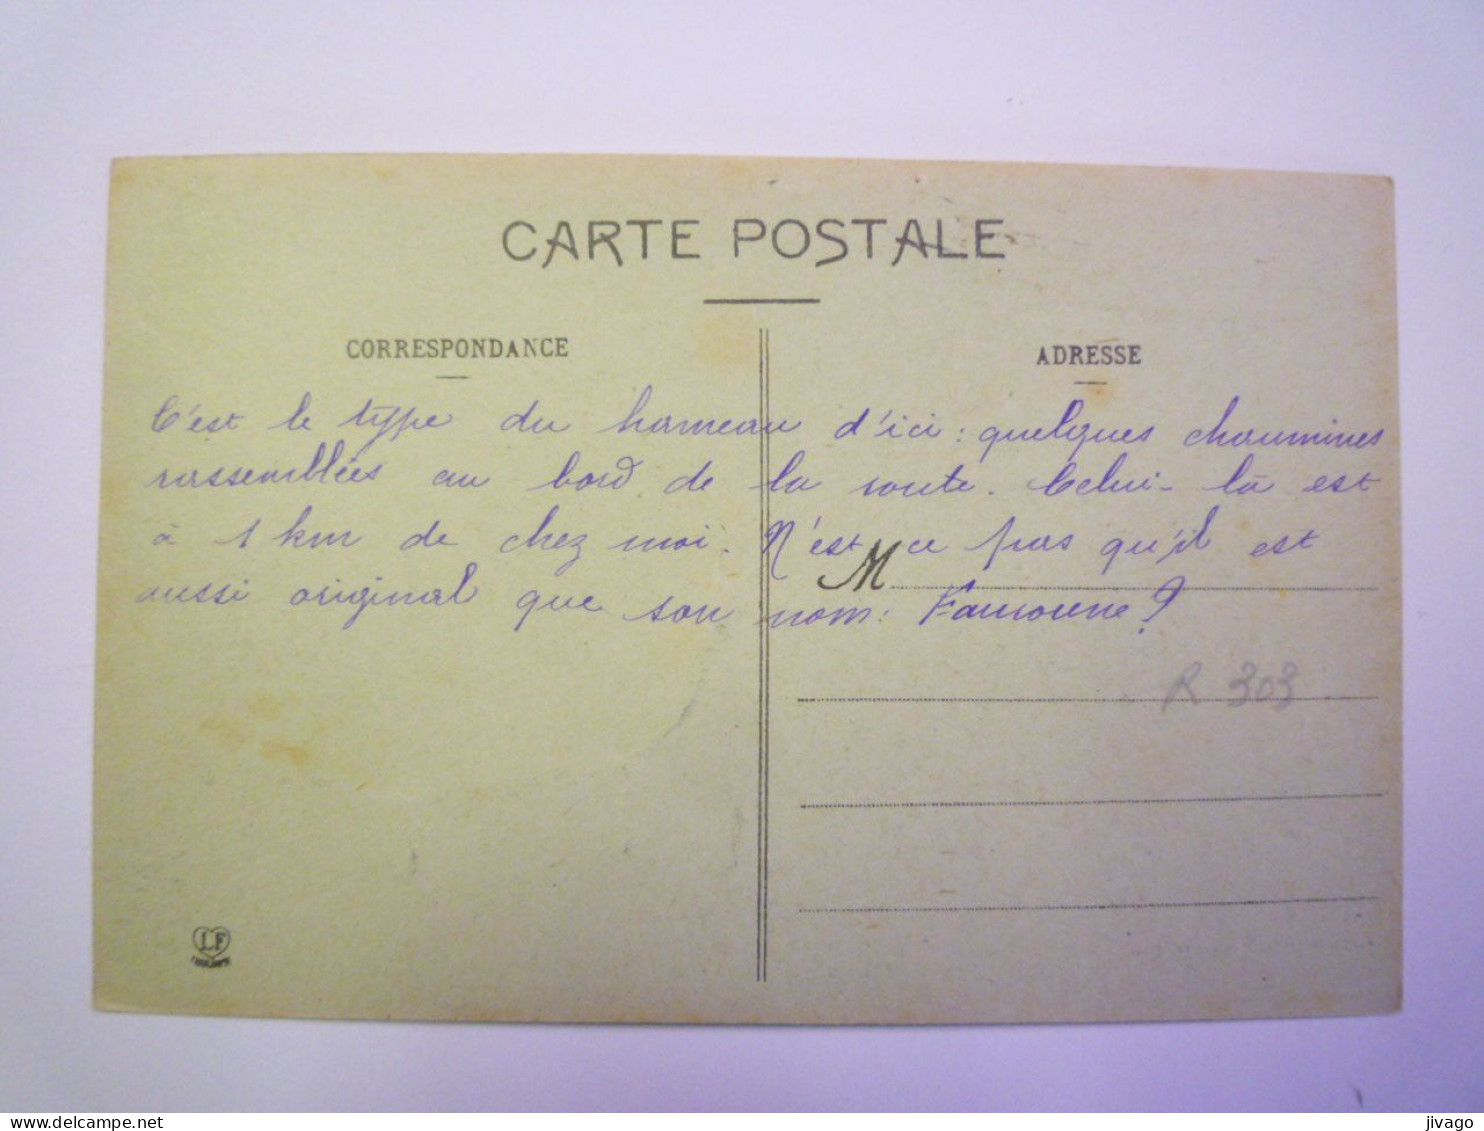 CARTE POSTALE
CORRESPONDANCE
ADRESSE
C'est le type du hameau d'ici : quelques chaumines
rassemblées au bord de la route. Celui-là est
à 1 km de chez moi. N'est ce pas qu'il est
M
aussi original que son nom : Famorene ?
R 303
LF
www.delcampe.net
jivago